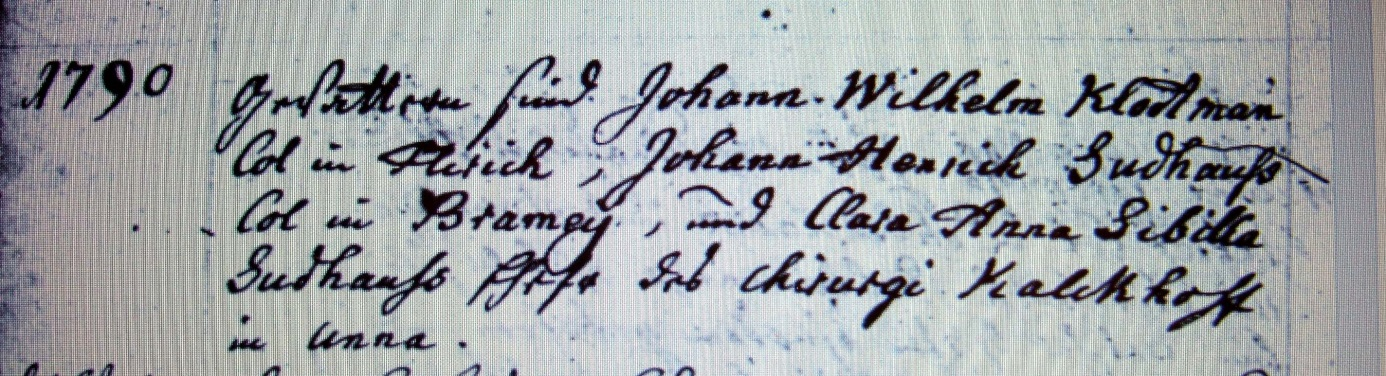 1790 Gevattern sind Johann Wilhelm Klootman
Col in Flirich, Johann Henrich Sudhauss
Col in Bramey, und Clara Anna Sibilla
Sudhauss Ehefr des Chirurgi Kalckhoff
in Unna.